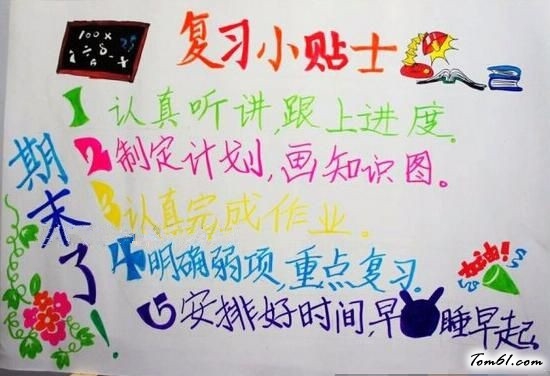 100 x
÷ 8
复习小贴士
期末了!
1 认真听讲,跟上进度。
2 制定计划,画知识图。
3 认真完成作业。
4 明确弱项,重点复习。
5 安排好时间,早睡早起。
Tom61.com